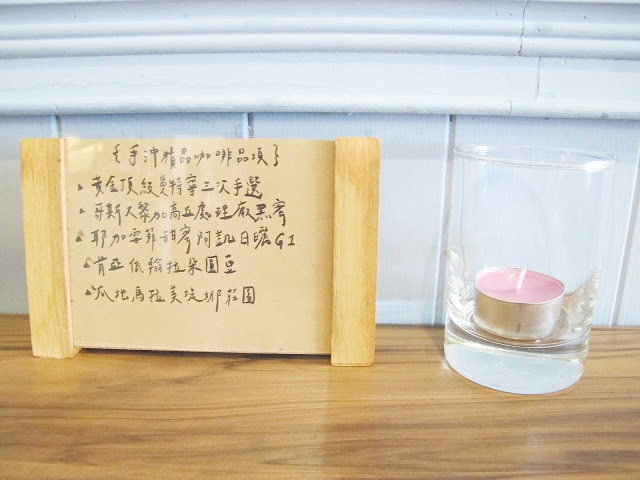 {手沖精品咖啡品項}
▲黃金頂級曼特寧三次手選
▲哥斯大黎加高丘處理廠黑蜜
▲耶加雪菲甜蜜阿凱日曬G1
▲肯亞 伯翰拉朵圓豆
▲瓜地馬拉美琁娜莊園